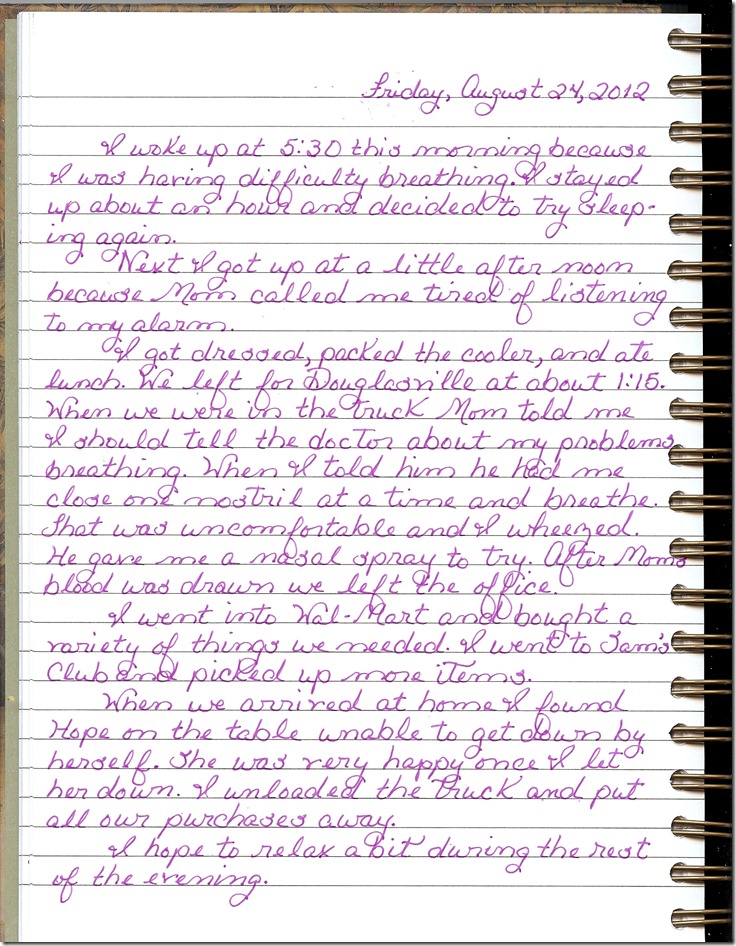 Friday, August 24, 2012
I woke up at 5:30 this morning because
I was having difficulty breathing. I stayed
up about an hour and decided to try sleep-
ing again.
Next I got up at a little after noon
because Mom called me tired of listening
to my alarm.
I got dressed, packed the cooler, and ate
lunch. We left for Douglasville at about 1:15.
When we were in the truck Mom told me
I should tell the doctor about my problems
breathing. When I told him he had me
close one nostril at a time and breathe.
That was uncomfortable and I wheezed.
He gave me a nasal spray to try. After Moms
blood was drawn we left the office.
I went into Wal-Mart and bought a
variety of things we needed. I went to Sam's
Club and picked up more items.
When we arrived at home I found
Hope on the table unable to get down by
herself. She was very happy once I let
her down. I unloaded the truck and put
all our purchases away.
I hope to relax a bit during the rest
of the evening.